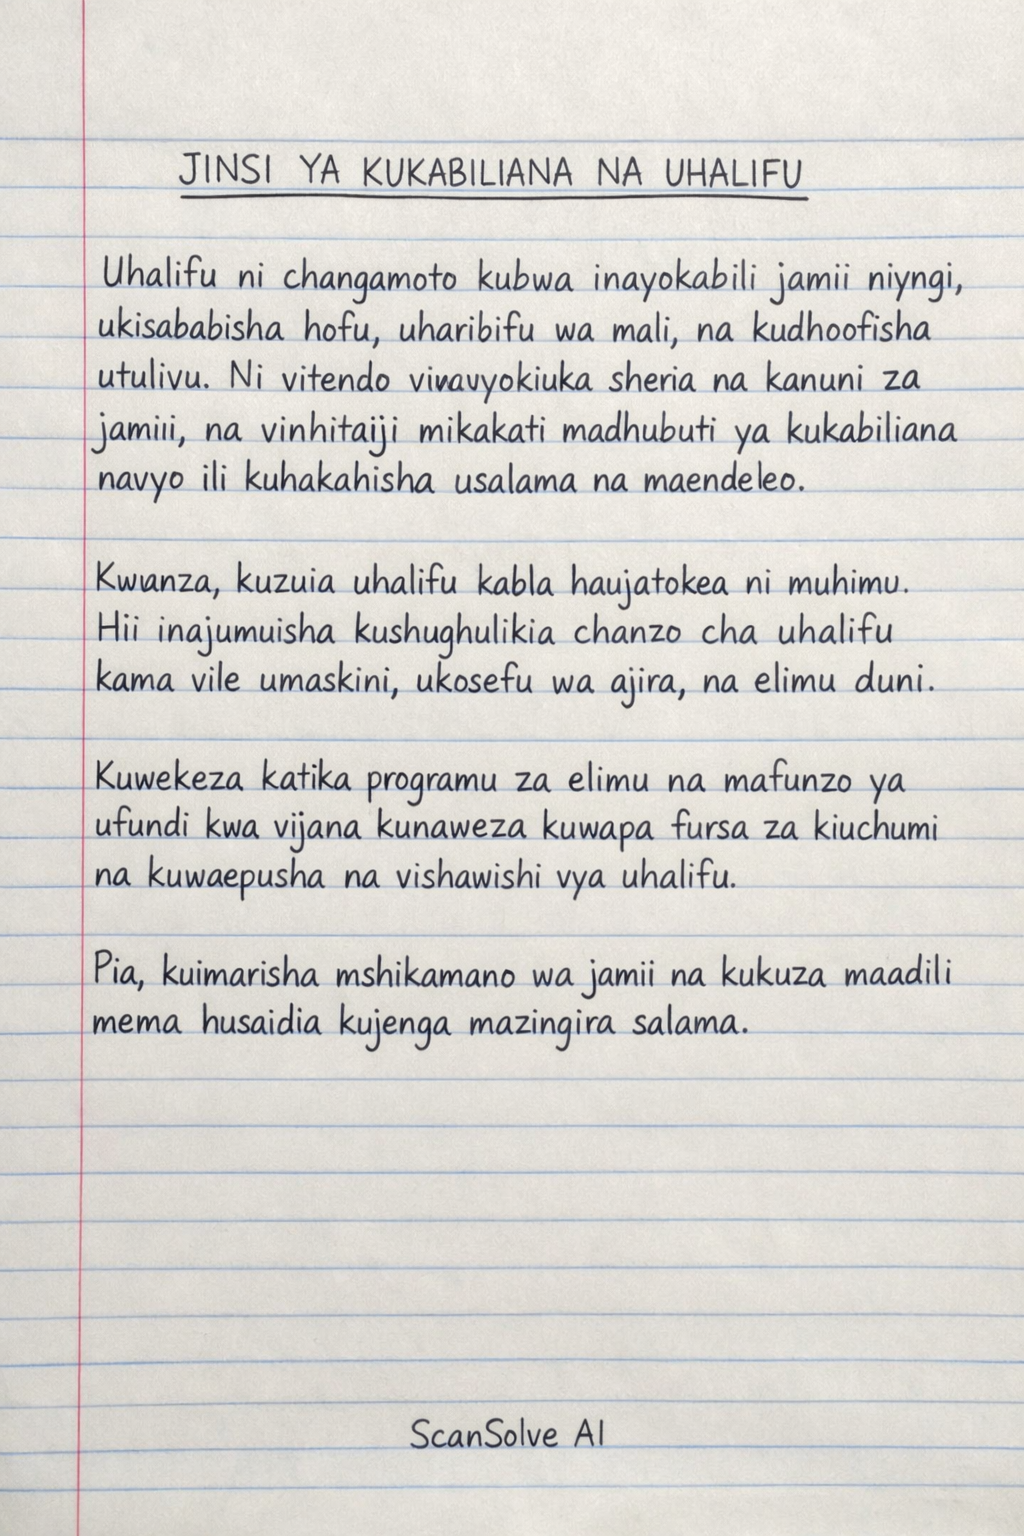 JINSI YA KUKABILIANA NA UHALIFU
Uhalifu ni changamoto kubwa inayokabili jamii niyngi,
ukisababisha hofu, uharibifu wa mali, na kudhoofisha
utulivu. Ni vitendo vivavyokiuka sheria na kanuni za
jamiii, na vinhitaiji mikakati madhubuti ya kukabiliana
navyo ili kuhakahisha usalama na maendeleo.
Kwanza, kuzuia uhalifu kabla haujatokea ni muhimu.
Hii inajumuisha kushughulikia chanzo cha uhalifu
kama vile umaskini, ukosefu wa ajira, na elimu duni.
Kuwekeza katika programu za elimu na mafunzo ya
ufundi kwa vijana kunaweza kuwapa fursa za kiuchumi
na kuwaepusha na vishawishi vya uhalifu.
Pia, kuimarisha mshikamano wa jamii na kukuza maadili
mema husaidia kujenga mazingira salama.
ScanSolve AI